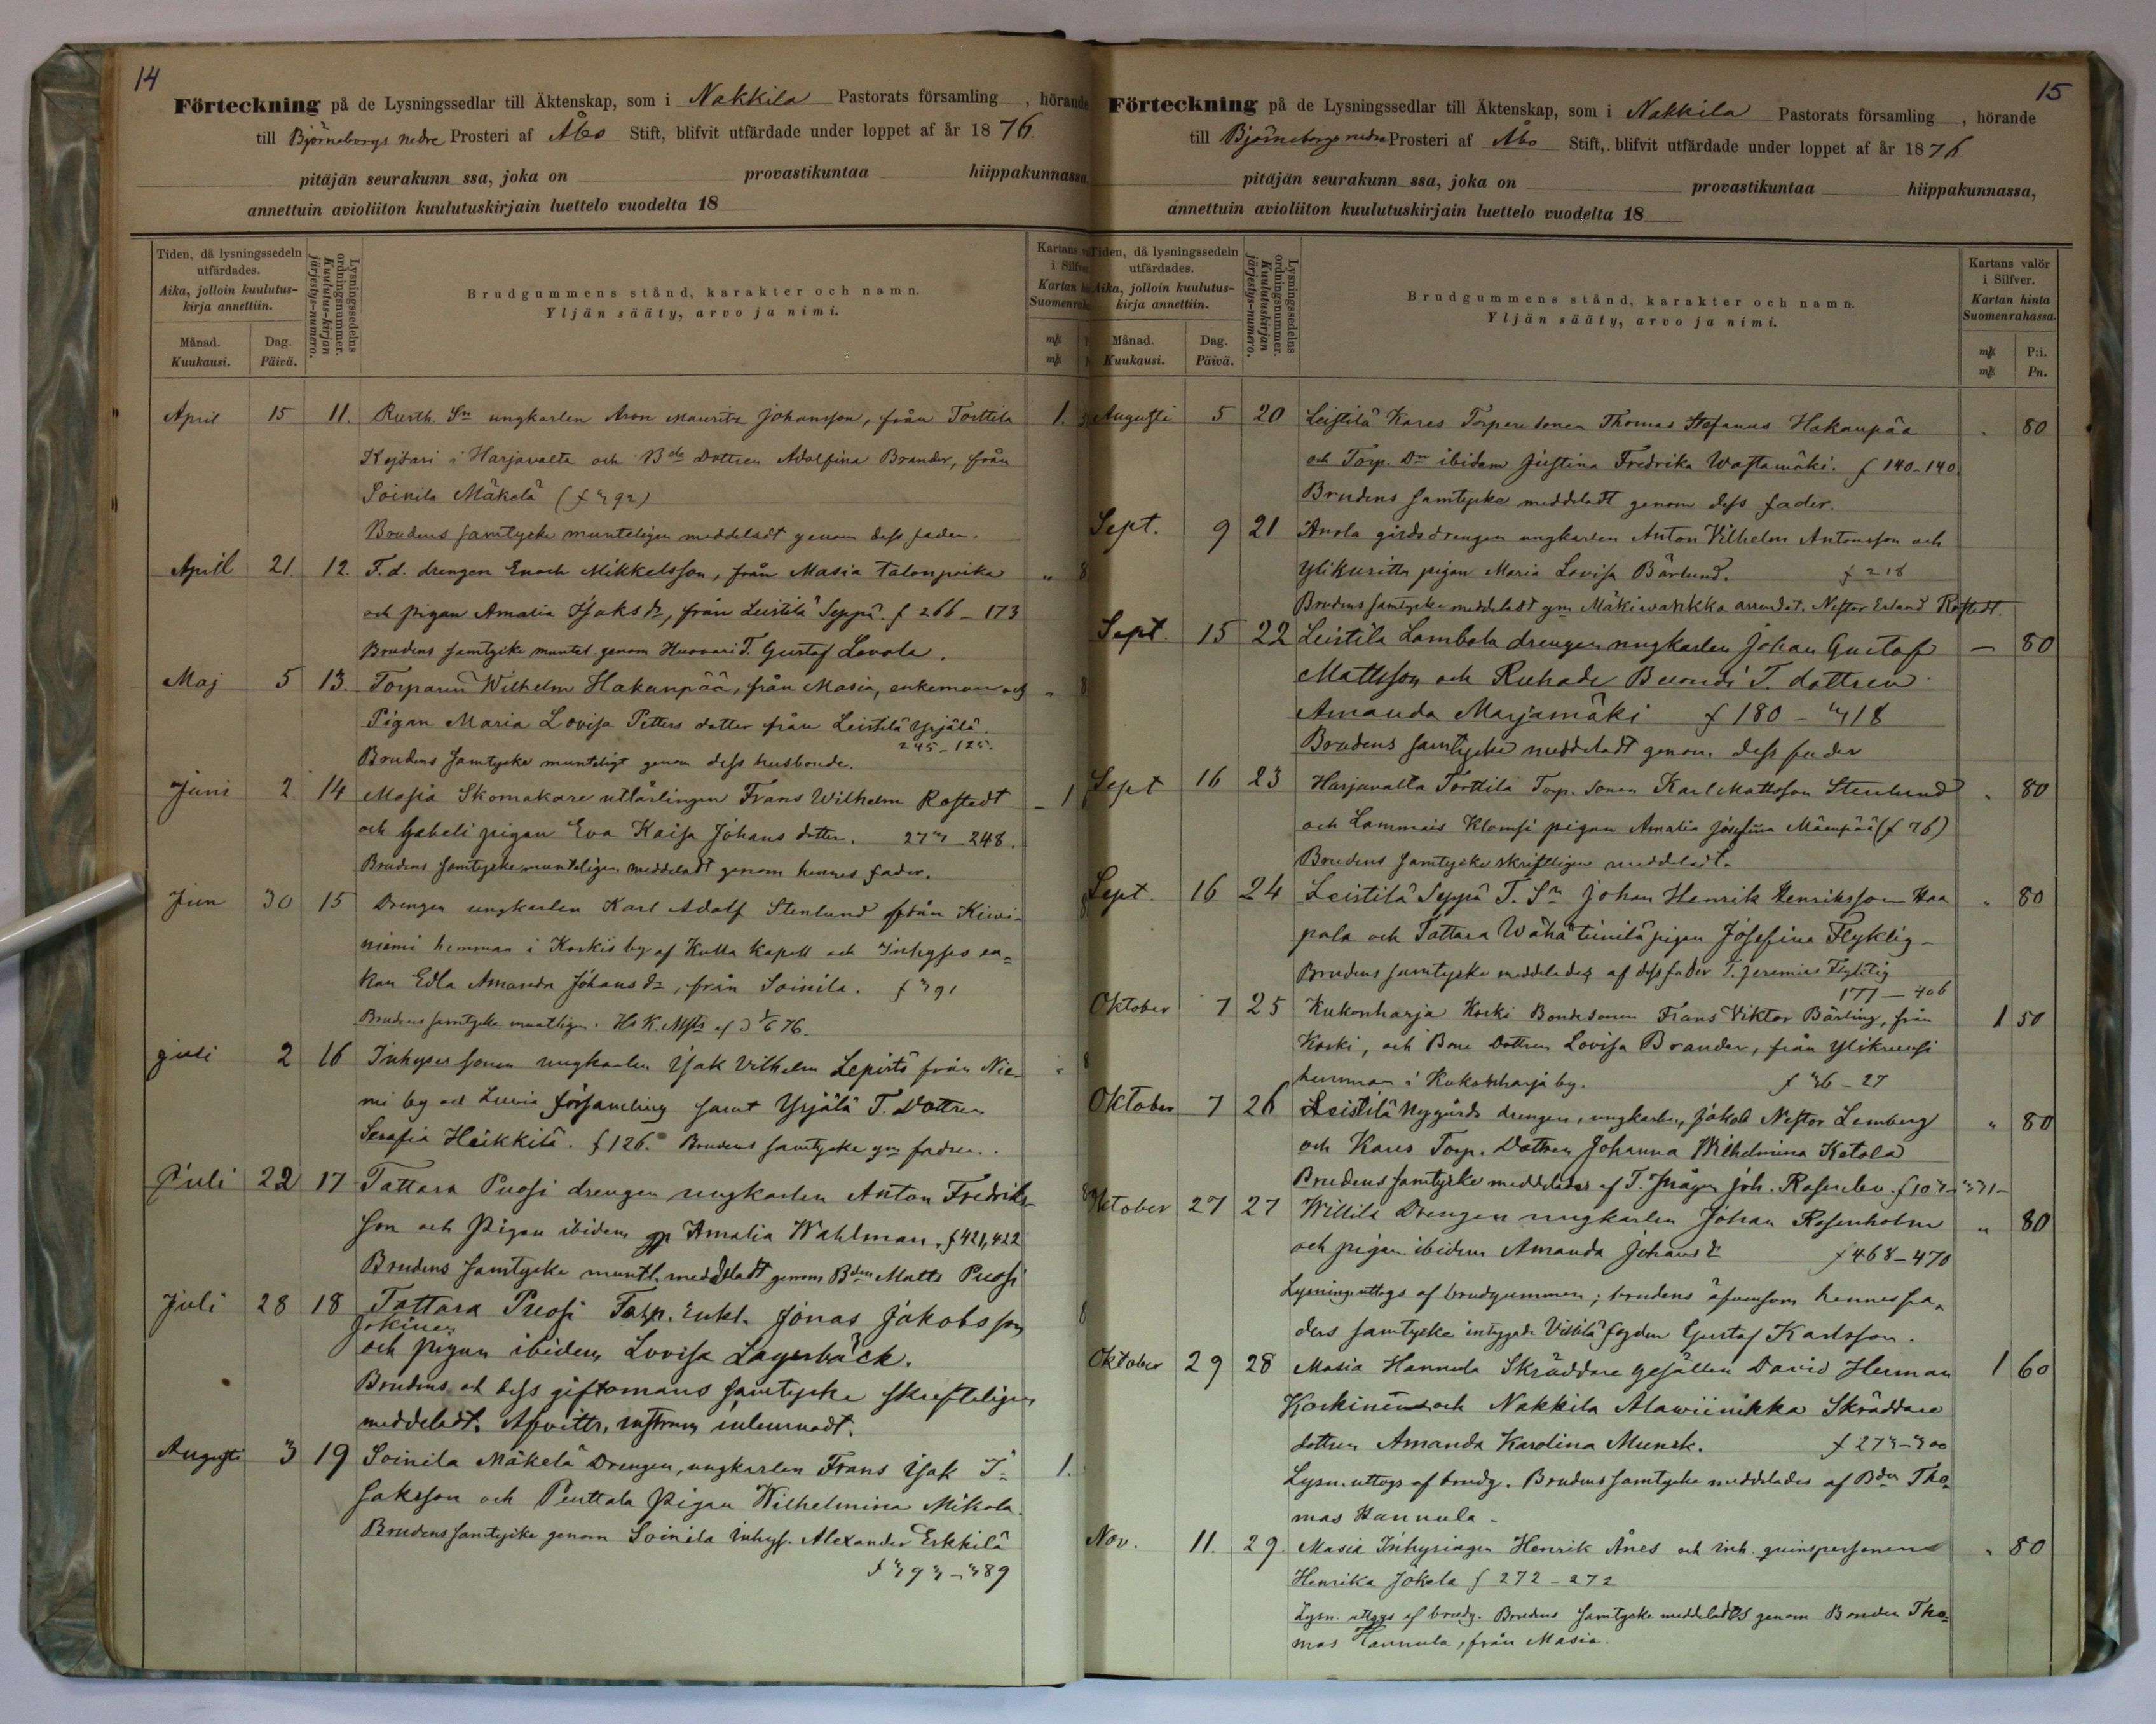 14
Förteckning på de Lysningssedlar till Äktenskap, som i Nakkila Pastorats församling , hörande
till Björneborgs nedre Prosteri af Åbo Stift, blifvit utfärdade under loppet af år 1876.
pitäjän seurakunn ssa, joka on provastikuntaa hiippakunnassa,
annettuin avioliiton kuulutuskirjain luettelo vuodelta 18
Tiden, då lysningssedeln utfärdades.
Aika, jolloin kuulutuskirja annettiin.
Månad. Kuukausi.
Dag. Päivä.
Lysningssedelns ordningsnummer.
Kuulutus-kirjan järjestys-numero.
Brudgummens stånd, karakter och namn.
Yljän sääty, arvo ja nimi.
Kartans
i Silfver
Kartan
Suomenraha
mk
mk
April 15 11. Rusth. Sn ungkarlen Aron Mauritz Johansson, från Torttila 1.
Kejsari i Harjavalta och Bde Dottren Adolfina Brander, från
Soinila Mäkelä
Brudens samtycke munteligen meddeladt genom dess fader.
April 21 12. T.d. drengen Enoch Mikkelsson, från Masia Talonpoika " 8
och pigan Amalia Isaksdr, från Leistilä Seppä. f 266–173
Brudens samtycke muntel. genom Huovari T. Gustaf Levola.
Maj 5 13. Torparen Wilhelm Hakanpää, från Masia, enkeman och " 8
Pigan Maria Lovisa Petters dotter från Leistilä Yrjälä.
245–125.
Brudens samtycke munteligt genom dess husbonde.
Juni 2 14 Masia Skomakare utlärlingen Frans Wilhelm Rostedt – 1
och Gebeli pigan Eva Kaisa Johans dotter. 248.
Brudens samtycke munteligen meddeladt genom hennes fader.
Jun 30 15 Drengen ungkarlen Karl Adolf Stenlund från Kiwi-
niemi hemman i Korkis by af Kulla Kapell och Inhyses en=
kan Edla Amanda Johansdr, från Soinila.
Brudens samtycke muntligen.
Juli 2 16 Inhyses sonen ungkarlen Isak Vilhelm Lepistö från Nie-
mi by och Luvia församling samt Yrjälä T. Dottren
Serafia Heikkilä. f 126. Brudens samtycke gm fadren.
Juli 22 17 Tattara Puosi drengen ungkarlen Anton Fredriks-
son och Pigan ibidem Amalia Wahlman. f 421,422
Brudens samtycke muntl. meddeladt genom Bden Matts Puosi
Juli 28 18 Tattara Puosi Torp. Enkl. Jonas Jakobsson 8
Jokinen
och pigan ibidem Lovisa Lagerbäck.
Brudens och dess giftomans samtycke skrifteligen
meddeladt. Afvittr. instrum inlemnadt.
Augusti 3 19 Soinila Mäkelä Drengen, ungkarlen Frans Isak I= 1.
saksson och Penttala Pigan Wilhelmina Mikola.
Brudens samtycke genom Soinila Inhys. Alexander Erkkilä
15
Förteckning på de Lysningssedlar till Äktenskap, som i Nakkila Pastorats församling , hörande
till Björneborgs nedre Prosteri af Åbo Stift, blifvit utfärdade under loppet af år 1876
pitäjän seurakunn ssa, joka on provastikuntaa hiippakunnassa,
annettuin avioliiton kuulutuskirjain luettelo vuodelta 18
Tiden, då lysningssedeln utfärdades.
Aika, jolloin kuulutuskirja annettiin.
Månad. Kuukausi.
Dag. Päivä.
Lysningssedelns ordningsnummer.
Kuulutuskirjan järjestys-numero.
Brudgummens stånd, karakter och namn.
Yljän sääty, arvo ja nimi.
Kartans valör
i Silfver.
Kartan hinta
Suomenrahassa.
mk P:i.
mk Pn.
Augusti 5 20 Leistilä Kares Torpare sonen Thomas Stefanus Hakanpää . 80
och Torp. Dn ibidem Justina Fredrika Wastamäki. f 140–140
Brudens samtycke meddeladt genom dess fader.
Sept. 9 21 Anola gårdsdrengen ungkarlen Anton Vilhelm Antonsson och
Ylikuritta pigan Maria Lovisa Bärlund. f 218
Brudens samtycke meddeladt gm Mäkiwankka arrendat. Nestor Erland Rostedt.
Sept. 15 22 Leistila Lambola drengen ungkarlen Johan Gustaf – 80
Mattsson och Ruhade Buondi T. dottren
Amanda Marjamäki f 180
Brudens samtycke meddeladt genom dess fader
Sept 16 23 Harjavalta Torttila Torp. sonen Karl Mattsson Stenlund . 80
och Lammais Klemsi pigan Amalia Josefina Mäenpää (f 76)
Brudens samtycke skriftligen meddeladt.
Sept. 16 24 Leistilä Seppä T. Sn Johan Henrik Henriksson Haa " 80
pala och Tattara Wähätiinilä pigan Josefina Flyktig –
Brudens samtycke meddelades af dess fader T. Jeremias Flyktig
177 – 406
Oktober 7 25 Kukonharja Koski Bondesonen Frans Viktor Bärling, från 1 50
Koski, och Bone Dottren Lovisa Brander, från Ylikruusi
hemman i Kukonharja by.
Oktober 7 26 Leistilä Nygårds drengen, ungkarlen, Jakob Nestor Lemberg " 80
och Kares Torp. Dottren Johanna Wilhelmina Ketola
Brudens samtycke meddelades af T. Mågen Joh. Rosenlev.
Oktober 27 27 Willilä Drengen ungkarlen Johan Rosenholm " 80
och pigan ibidem Amanda Johansdr f 468–470
Lysning uttogs af brudgummen; brudens äfvensom hennes fa-
ders samtycke intygade Villilä fogden Gustaf Karlsson.
Oktober 29 28 Masia Hannula Skräddare gesällen David Herman 1 60
Koskinen och Nakkila Alawiinikka Skräddare
dottren Amanda Karolina Munck.
Lysn. uttogs af brudg. Brudens samtycke meddelades af Bden Tho-
mas Hannula –
Nov. 11. 29. Masia Inhysingen Henrik Ånes och inh. qvinspersonen " 80
Henrika Jokela f 272–272
Lysn. uttogs af brudg. Brudens samtycke meddelades genom Bonden Tho=
mas Hannula, från Masia.